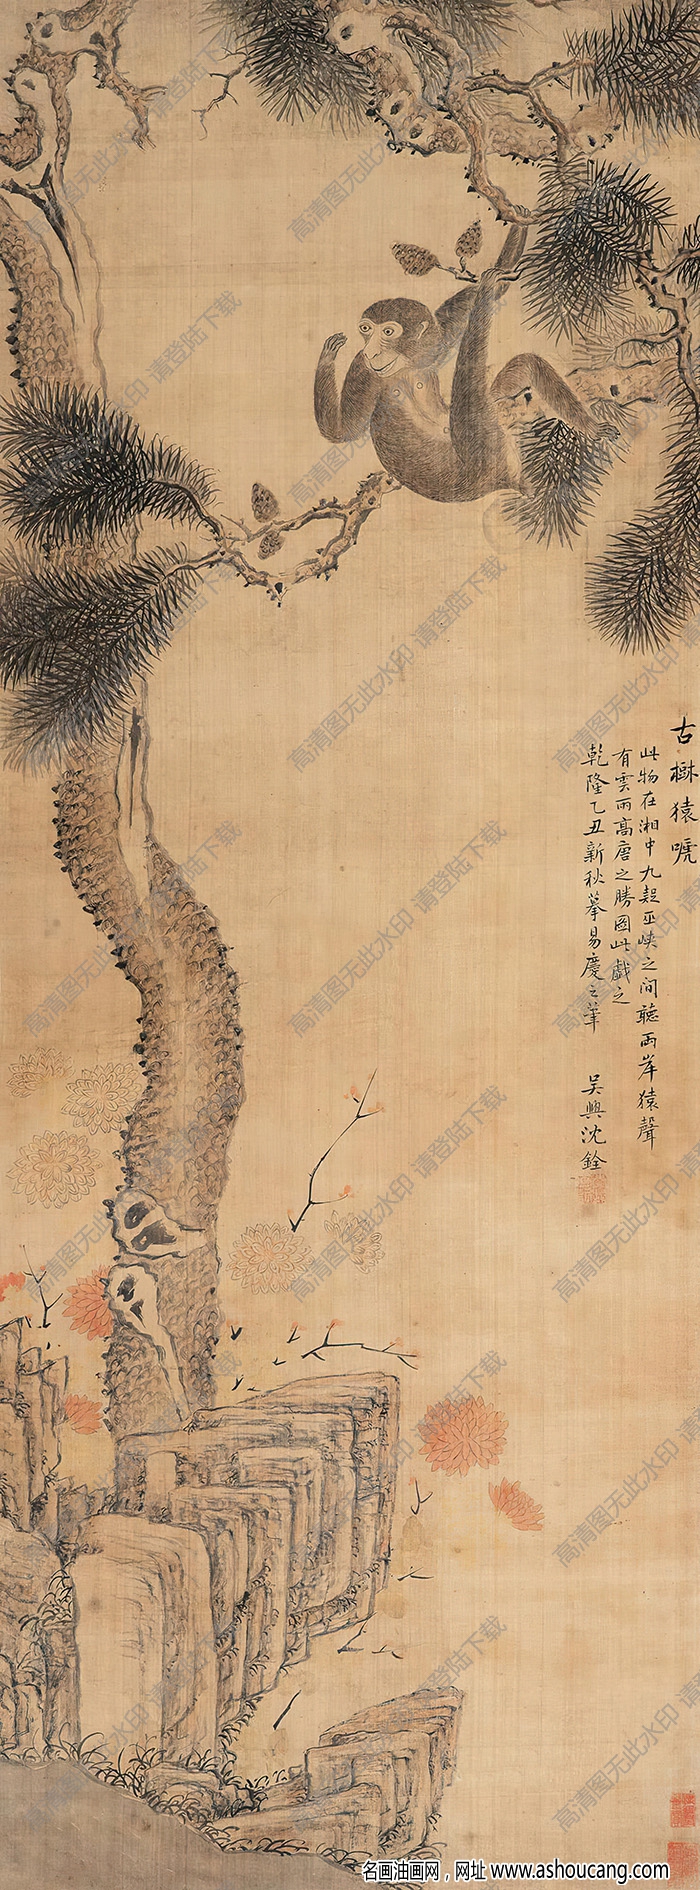 古樹猿啼
此物在湘中九疑巫峽之间聴両岸猿聲
有雲雨高唐之勝圖此戯之
乾隆乙丑新秋摹易慶之筆
吴興沈銓
高清图无此水印 请登陆下载
名画油画网，网址 www.ashoucang.com